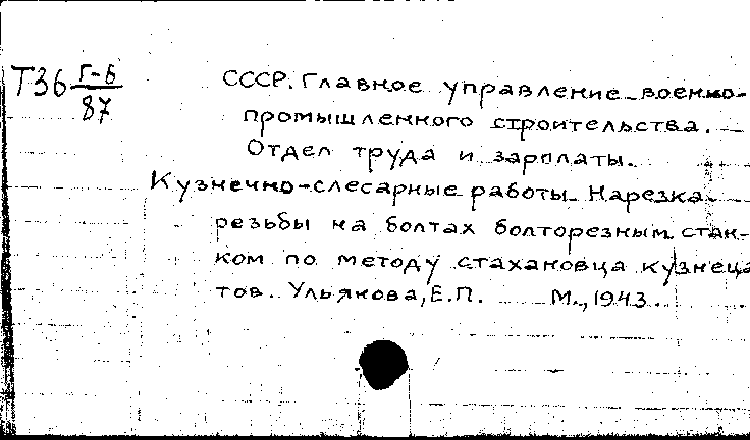 Т36 Г-6
87
СССР. Главное управление военно-
промышленного строительства.
Отдел труда и зарплаты.
Кузнечно-слесарные работы. Нарезка
резьбы на болтах болторезным стан-
ком по методу стахановца кузнеца
тов. Ульянова, Е.П. М., 1943.